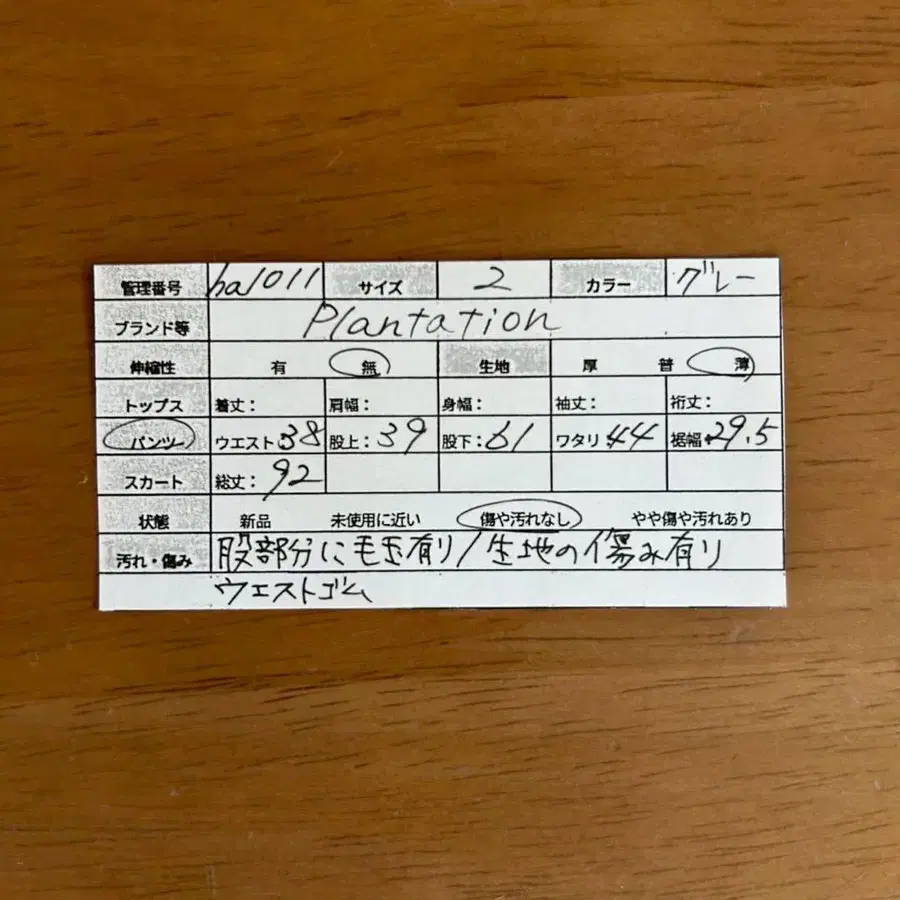 管理番号 ha1011 サイズ 2 カラー グレー
ブランド等 Plantation
伸縮性 有 無 生地 厚 普 薄
トップス 着丈： 肩幅： 身幅： 袖丈： 裄丈：
パンツ ウエスト 38 股上：39 股下：61 ワタリ 44 裾幅 29.5
スカート 総丈：92
状態 新品 未使用に近い 傷や汚れなし やや傷や汚れあり
汚れ・傷み 股部分に毛玉有り/生地の傷み有り
ウエストゴム